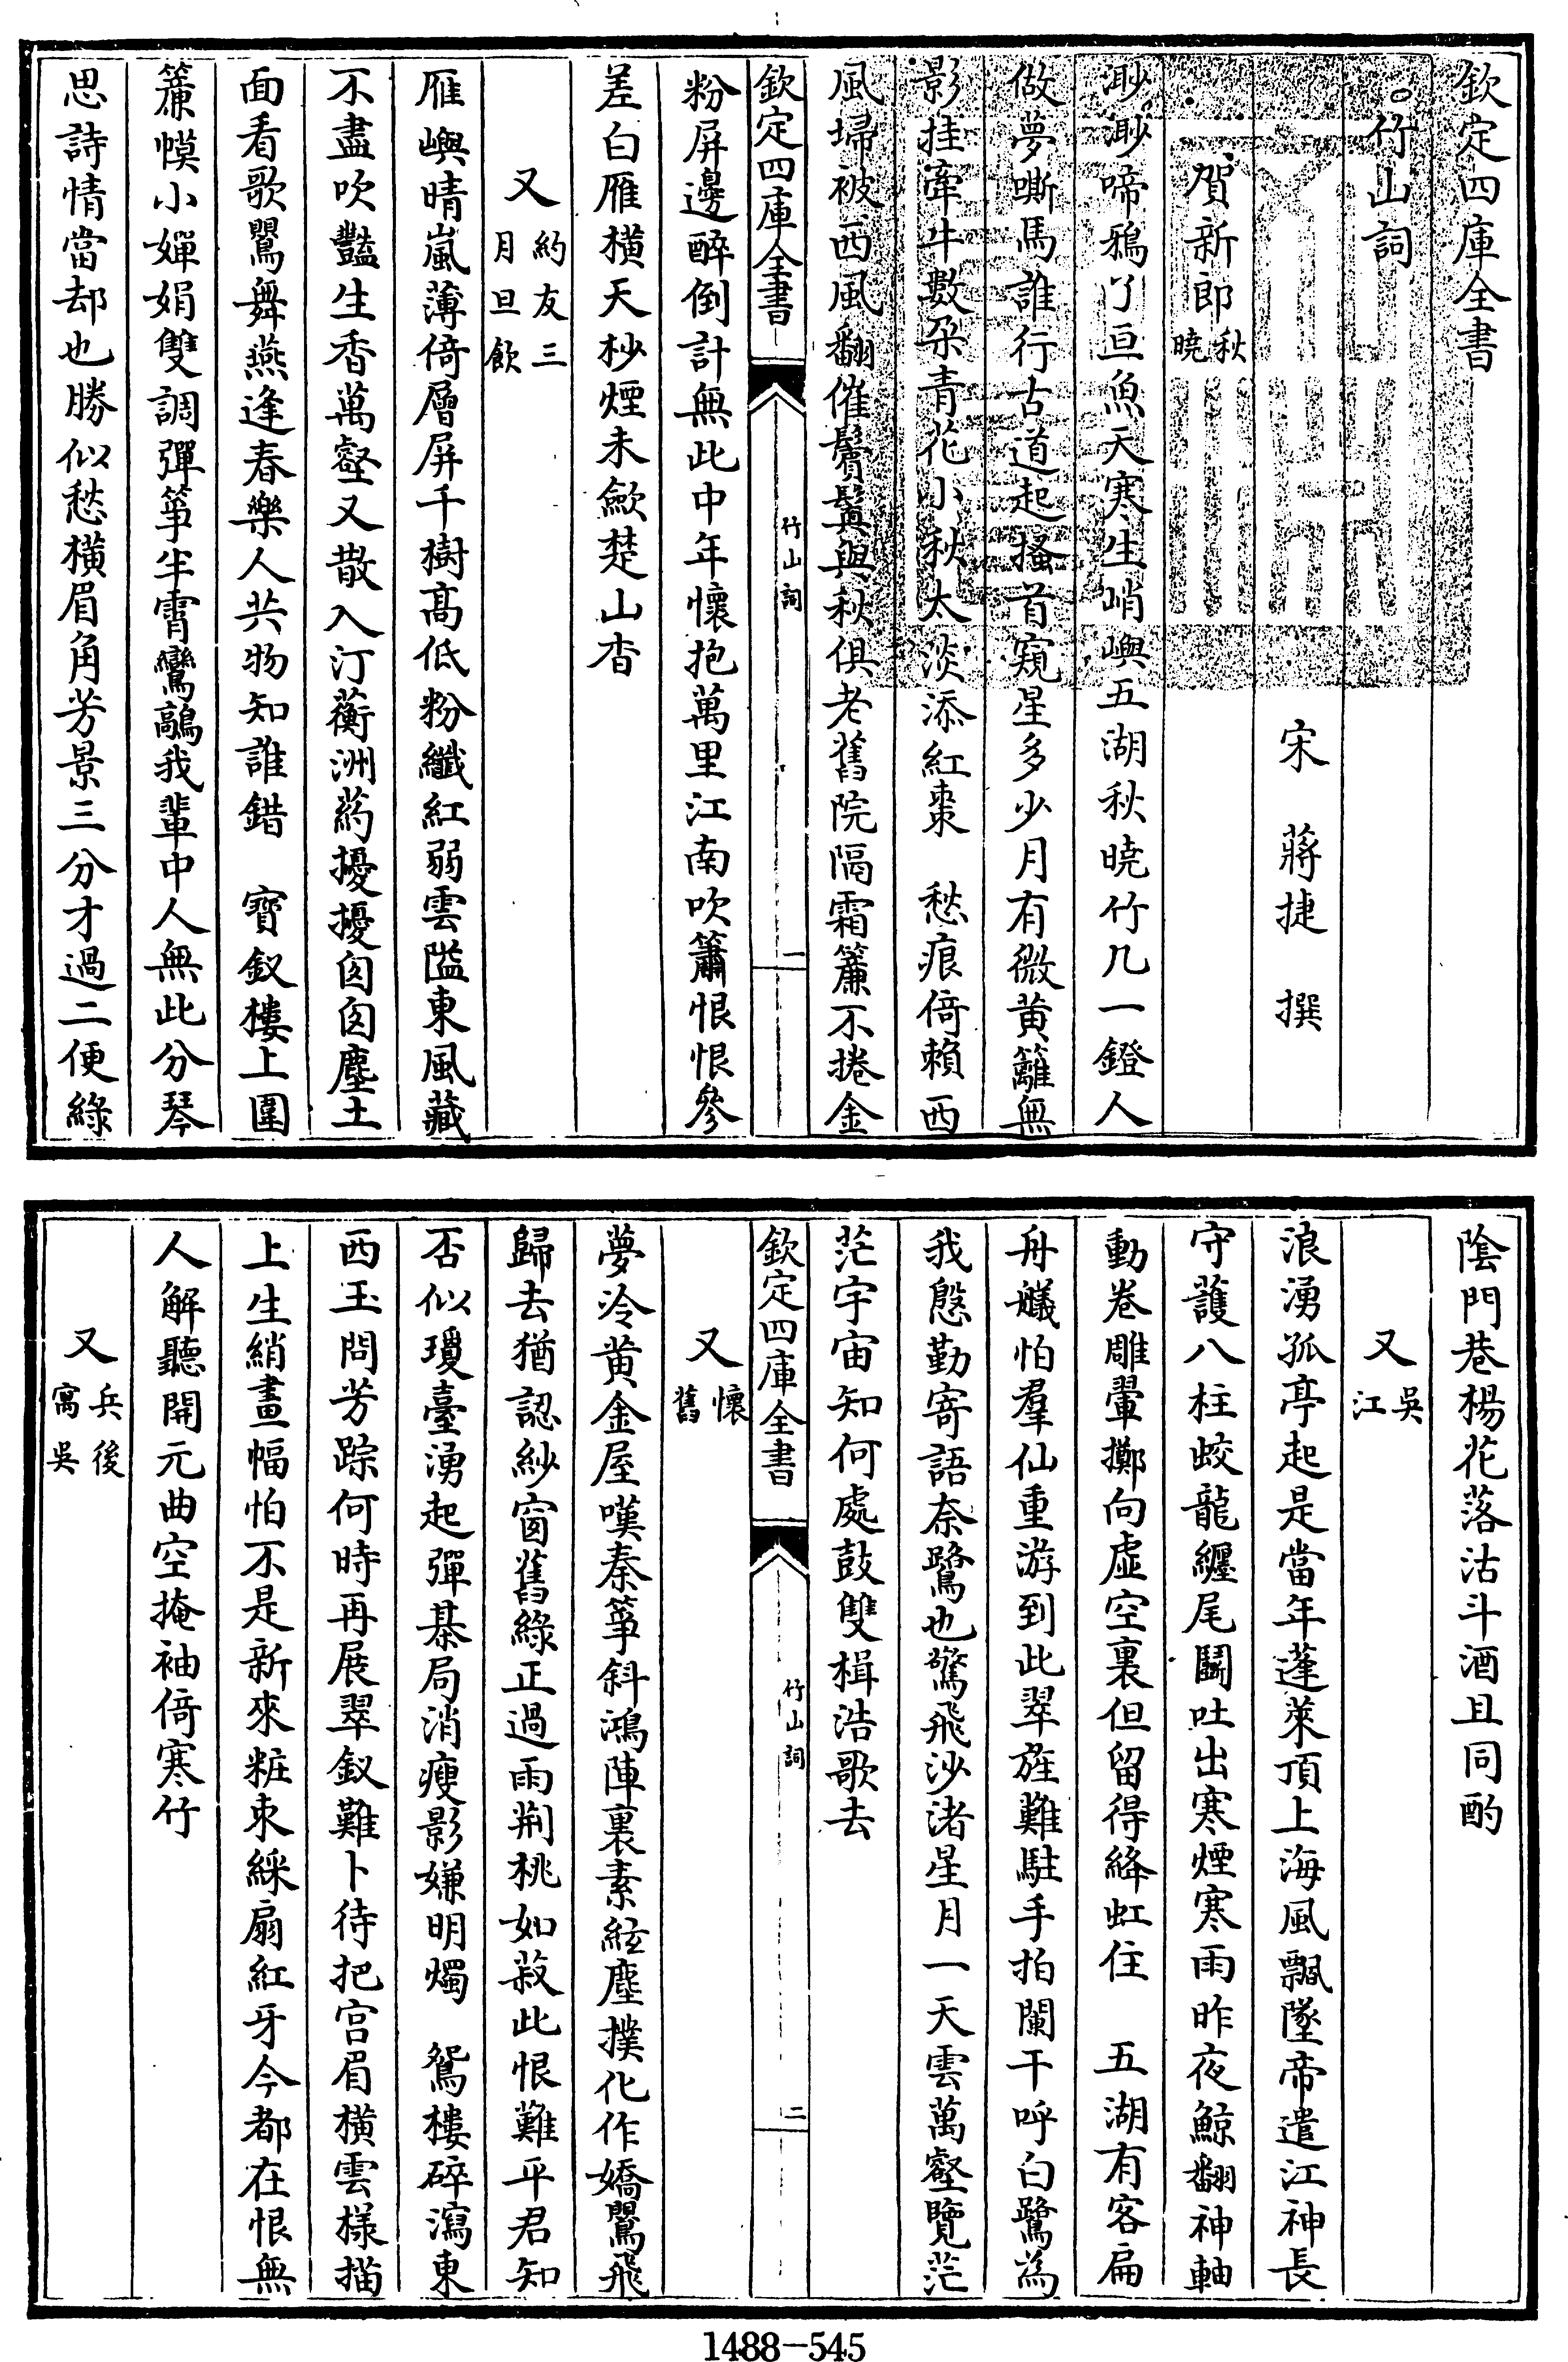 欽定四庫全書
竹山詞
宋 蔣捷 撰
賀新郎 秋曉
渺渺啼鴉了亘魚天寒生峭嶼五湖秋曉竹几一鐙人
做夢嘶馬誰行古道起搔首窺星多少月有微黄籬無
影挂牽牛數朶青花小秋太淡添紅棗 愁痕倚賴西
風埽被西風翻催鬢鬒與秋俱老舊院隔霜簾不捲金
粉屏邊醉倒計無此中年懷抱萬里江南吹簫恨恨參
差白雁橫天杪煙未歛楚山杳
又 約友三月旦飲
雁嶼晴嵐薄倚層屏千樹髙低粉纖紅弱雲隘東風藏
不盡吹豔生香萬壑又散入汀蘅洲葯擾擾匆匆塵土
面看歌鶯舞燕逢春樂人共物知誰錯 寶釵樓上圍
簾幙小嬋娟雙調彈箏半霄鸞鶮我輩中人無此分琴
思詩情當却也勝似愁橫眉角芳景三分才過二便綠
欽定四庫全書
竹山詞
一
陰門巷楊花落沽斗酒且同酌
又 吳江
浪湧孤亭起是當年蓬萊頂上海風飄墜帝遣江神長
守䕶八柱蛟龍纒尾鬭吐出寒煙寒雨昨夜鯨翻神軸
動卷雕翬擲向虚空裏但留得絳虹住 五湖有客扁
舟艤怕羣仙重游到此翠旌難駐手拍闌干呼白鷺為
我慇勤寄語奈鷺也驚飛沙渚星月一天雲萬壑覽茫
茫宇宙知何處鼓雙楫浩歌去
欽定四庫全書
竹山詞
二
又 懷舊
夢冷黄金屋嘆秦箏斜鴻陣裏素絃塵撲化作嬌鶯飛
歸去猶認紗窗舊綠正過雨荆桃如菽此恨難平君知
否似瓊臺湧起彈棊局消瘦影嫌明燭 鴛樓碎瀉東
西玉問芳踪何時再展翠釵難卜待把宫眉橫雲様描
上生綃畫幅怕不是新來粧束綵扇紅牙今都在恨無
人解聽開元曲空掩袖倚寒竹
又 兵後寓吳
1488-545